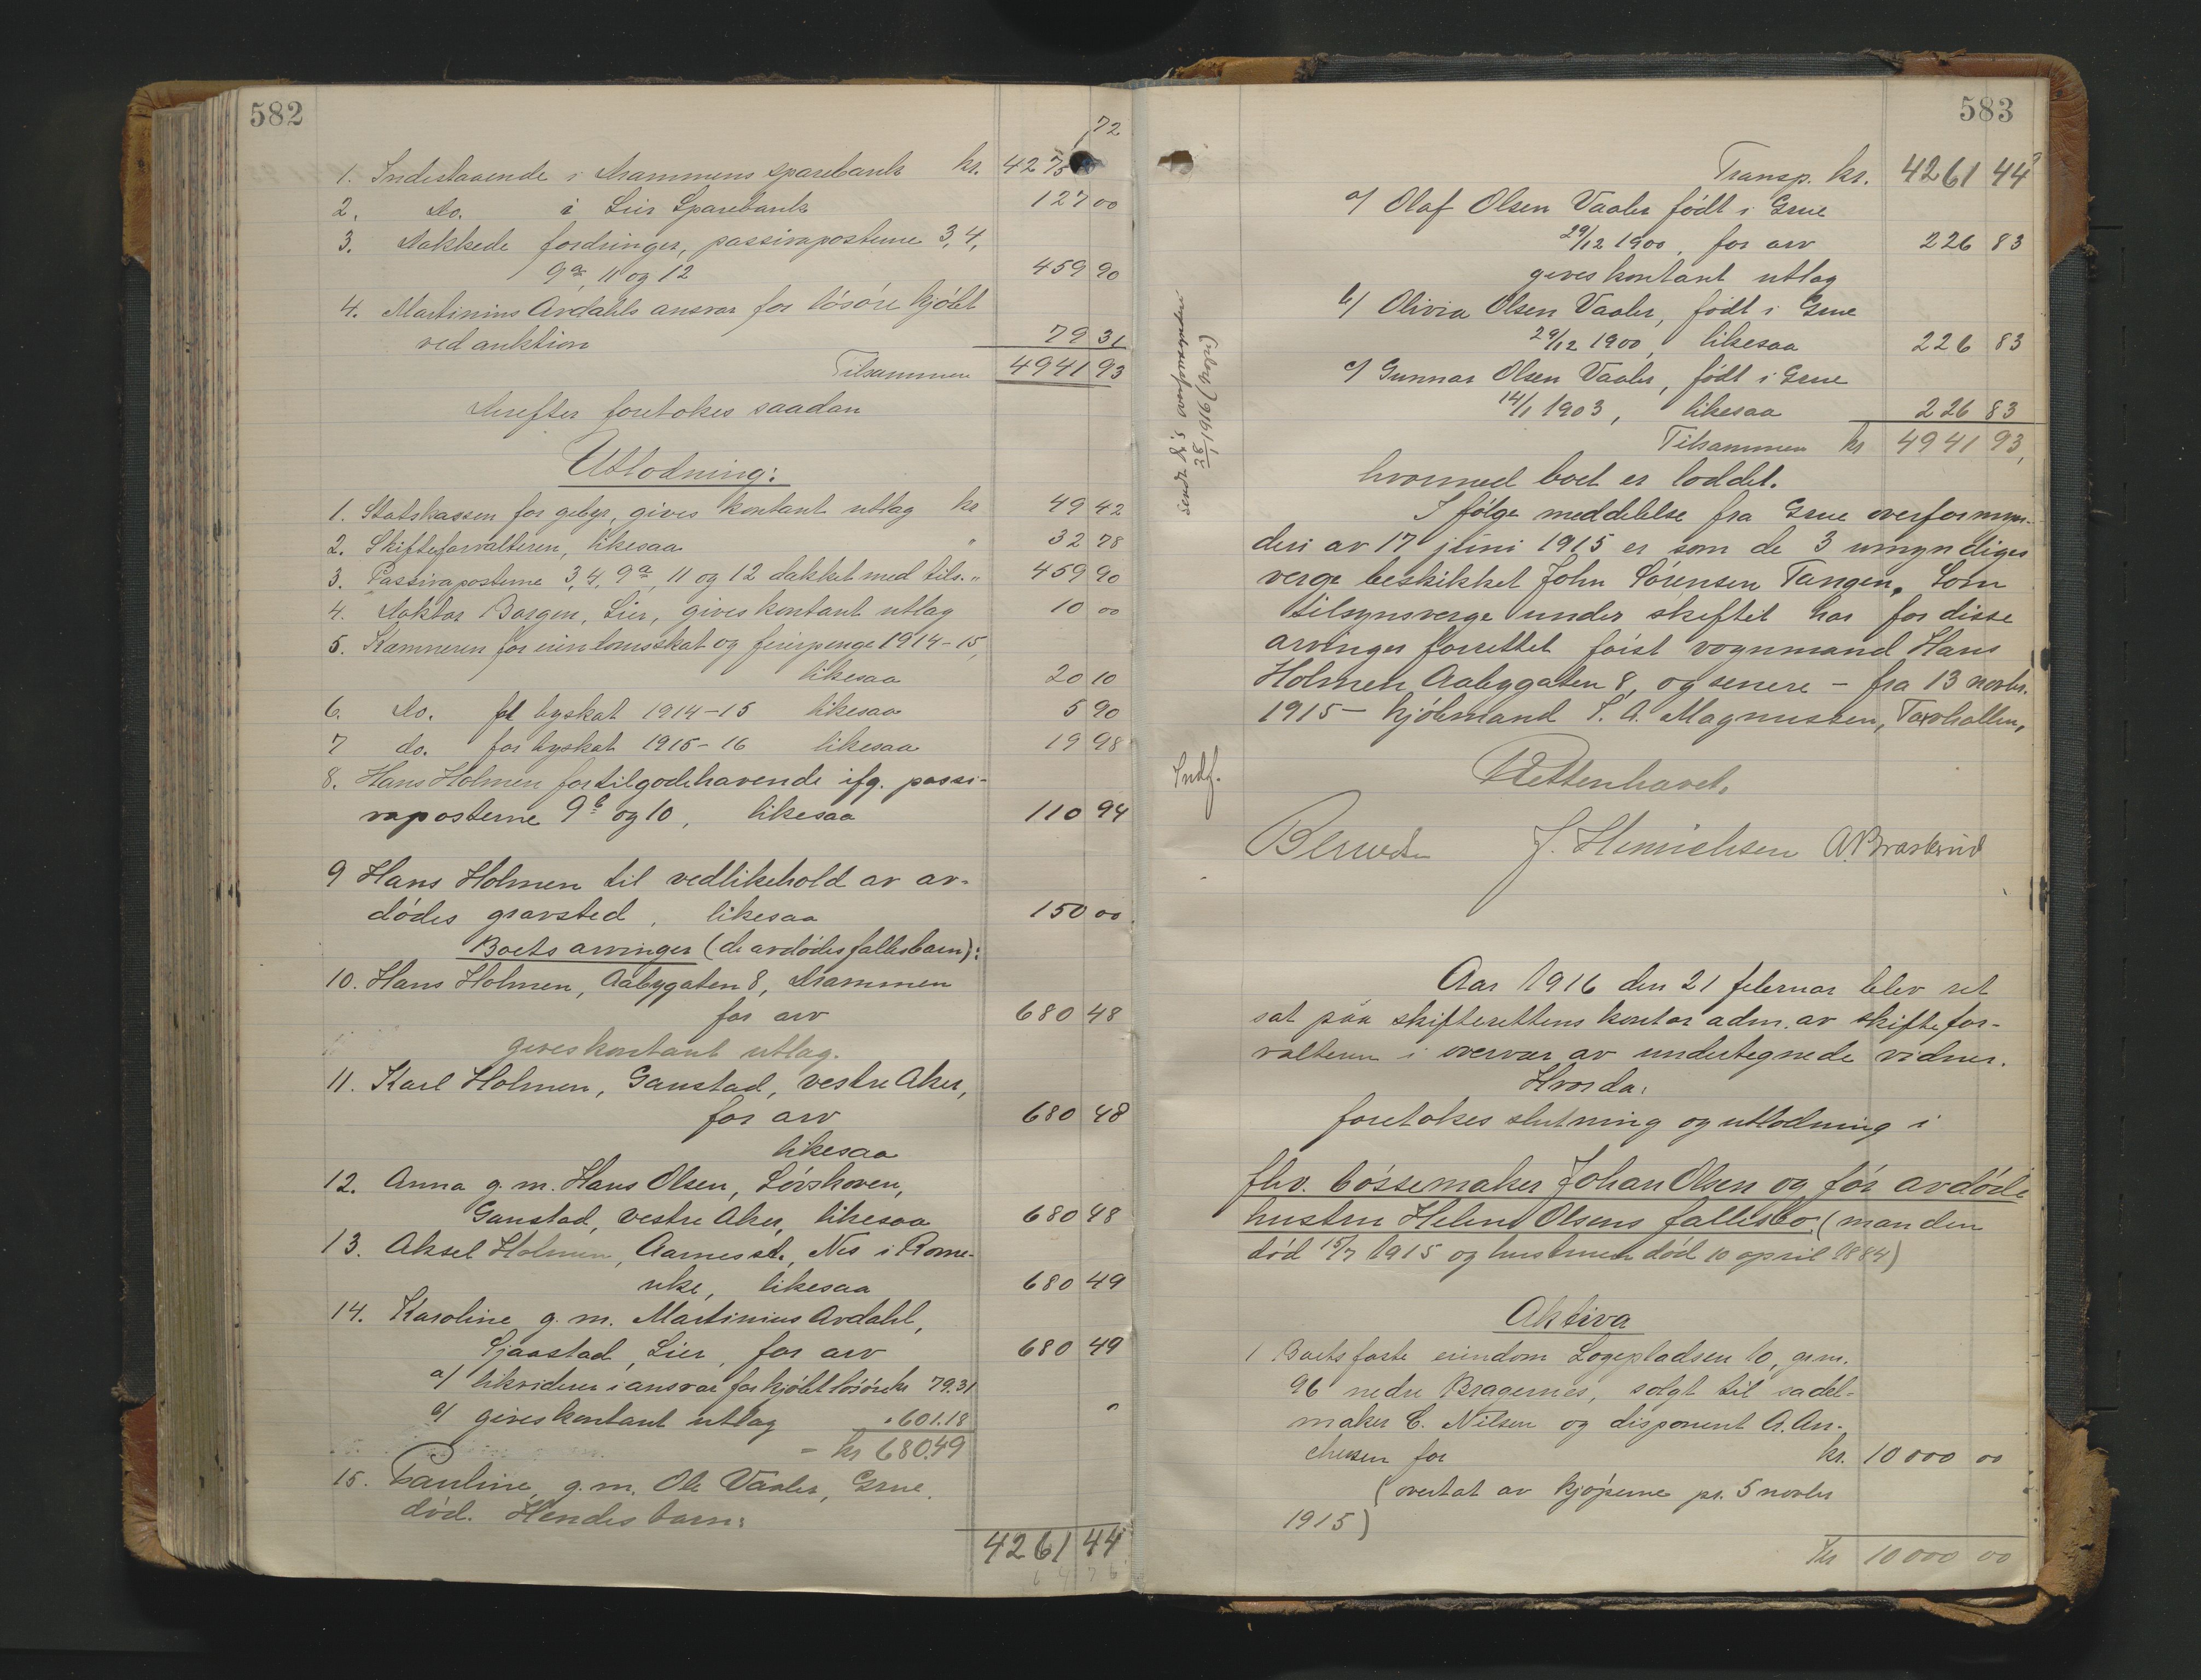 582
1. Indestaaende i Drammens sparebank kr. 4275 72
2. Do. i Lier Sparebank 127 00
3. Dækkede fordringer, passivaposterne 3, 4,
9a, 11 og 12 459 90
4. Martinius Ovdahls ansvar for løsøre kjøbt
ved auktion 79 31
Tilsammen 4941 93
Derefter foretokes saadan
Utlodning:
1. Statskassen for gebyr, gives kontant utlæg kr 49 42
2. Skifteforvalteren, likesaa " 32 78
3. Passivaposterne 3, 4, 9a, 11 og 12 dækket med tils. " 459 90
4. Doktor Borgen, Lier, gives kontant utlæg 10 00
5. Kæmneren for eiendomsskat og feierpenge 1914-15,
likesaa 20 10
6. Do. for byskat 1914-15 likesaa 5 90
7 do. for byskat 1915-16 likesaa 19 98
8. Hans Holmen for tilgodehavende ifg. passi-
vaposterne 9b og 10, likesaa 110 94
9 Hans Holmen til vedlikehold av av-
dødes gravsted, likesaa 150 00.
Boets arvinger (de avdødes fællesbarn):
10. Hans Holmen, Aabygaten 8, Drammen
for arv 680 48
gives kontant utlæg.
11. Karl Holmen, Gaustad, vestre Aker,
for arv 680 48
likesaa
12. Anna g. m. Hans Olsen, Løvskoven,
Gaustad, vestre Aker, likesaa 680 48
13. Aksel Holmen, Aarnes st., Nes i Rome-
rike, likesaa 680 49
14. Karoline g. m. Martinius Ovdahl,
Sjaastad, Lier, for arv 680 49
a/ likviderer i ansvar for kjøbt løsøre kr 79.31
b/ gives kontant utlæg " 601.18
= kr 680.49
15. Pauline, g. m. Ole Vaaler, Grue.
død. Hendes barn:
4261 44
583
Transp. kr. 4261 44
a/ Olaf Olsen Vaaler født i Grue
29/12 1900, for arv 226 83
gives kontant utlæg
b/ Olivia Olsen Vaaler, født i Grue
29/12 1900, likesaa 226 83
c/ Gunnar Olsen Vaaler, født i Grue
14/1 1903, likesaa 226 83
Tilsammen kr 4941 93,
hvormed boet er loddet.
I følge meddelelse fra Grue overformyn-
deri av 17 juni 1915 er som de 3 umyndiges
verge beskikket John Sørensen Tangen. Som
tilsynsverge under skiftet har for disse
arvinger forrettet først vognmand Hans
Holmen Aabygaten 8, og senere - fra 13 novbr.
1915 - kjøbmand S. A. Magnussen, Toshallen,
Indf.
Retten hævet.
J. Hinrichsen A. Braskerud
Aar 1916 den 21 februar blev ret
sat paa skifterettens kontor adm. av skiftefor-
valteren i overvær av undertegnede vidner.
Hvorda:
foretokes slutning og utlodning i
fhv. bøssemaker Johan Olsen og før avdøde
hustru Helene Olsens fællesbo (manden
død 15/7 1915 og hustruen død 10 april 1884)
Aktiva
1 Boets faste eiendom Løgepladsen 10, gr.nr.
96 nedre Bragernes, solgt til sadel-
maker C. Nilsen og disponent A. An-
dresen for kr. 10000 00
(overtat av kjøperne pr. 5 novbr
1915)
Kr 10000 00